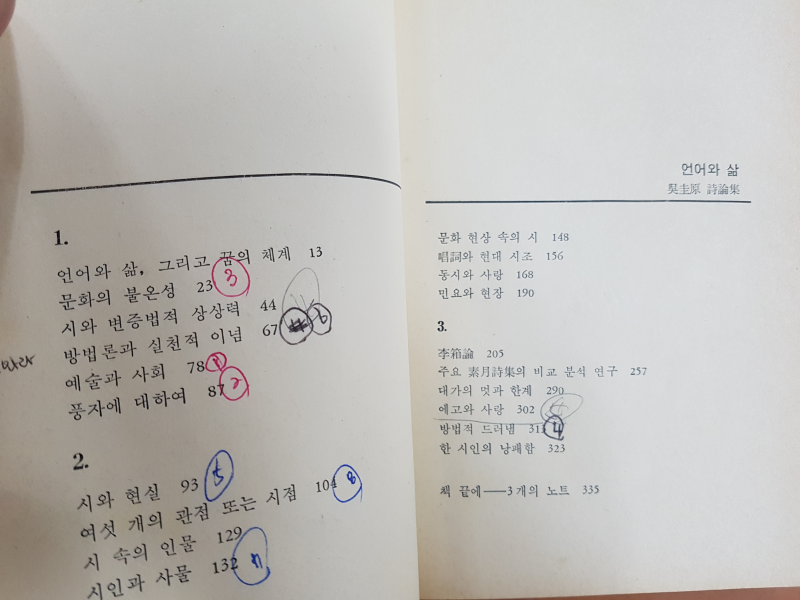 1.
언어와 삶, 그리고 꿈의 체계 13
문화의 불온성 23 3
시와 변증법적 상상력 44
방법론과 실천적 이념 67 6
예술과 사회 78 1
풍자에 대하여 87 2
2.
시와 현실 93 5
여섯 개의 관점 또는 시점 104 8
시 속의 인물 129
시인과 사물 132
언어와 삶
吳圭原 詩論集
문화 현상 속의 시 148
唱詞와 현대 시조 156
동시와 사랑 168
민요와 현장 190
3.
李箱論 205
주요 素月詩集의 비교 분석 연구 257
대가의 멋과 한계 290
에고와 사랑 302
방법적 드러냄 313 4
한 시인의 낭패함 323
책 끝에——3개의 노트 335